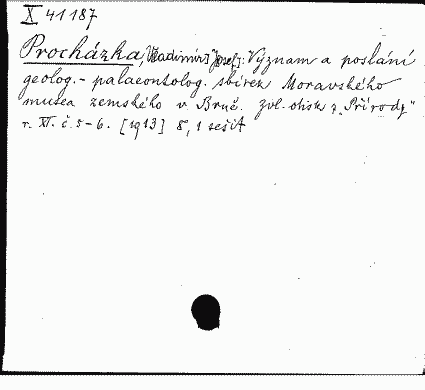 X 41187
Procházka, Vladimír Josef: Význam a poslání
geolog. - palaeontolog. sbírek Moravského
musea zemského v Brně. Zvl. otisk z „Přírody“
r. XI. č. 5-6. [1913] 8°, 1 sešit